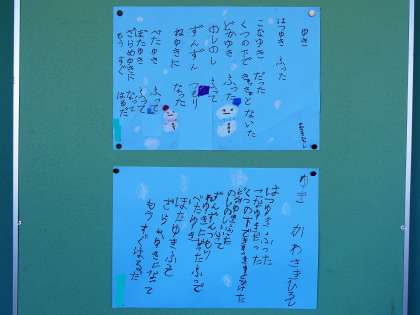 ゆき
はつゆき ふった
こなゆき だった
くつの下で きゅっきゅっと ないた
どかゆき ふった
のしのし ふって
ずんずん つもり
ねゆきに なった
べたゆき ふって
ぼたゆき ふって
ざらめゆきに なって
もうすぐ はるだ
ゆき かわさきひろし
はつゆきふった
こなゆきだった
くつの下できゅっきゅっとないた
どかゆきふった
のしのしふって
ずんずんつもり
ねゆきになった
べたゆきふって
ぼたゆきふって
ざらめゆきになって
もうすぐはるだ